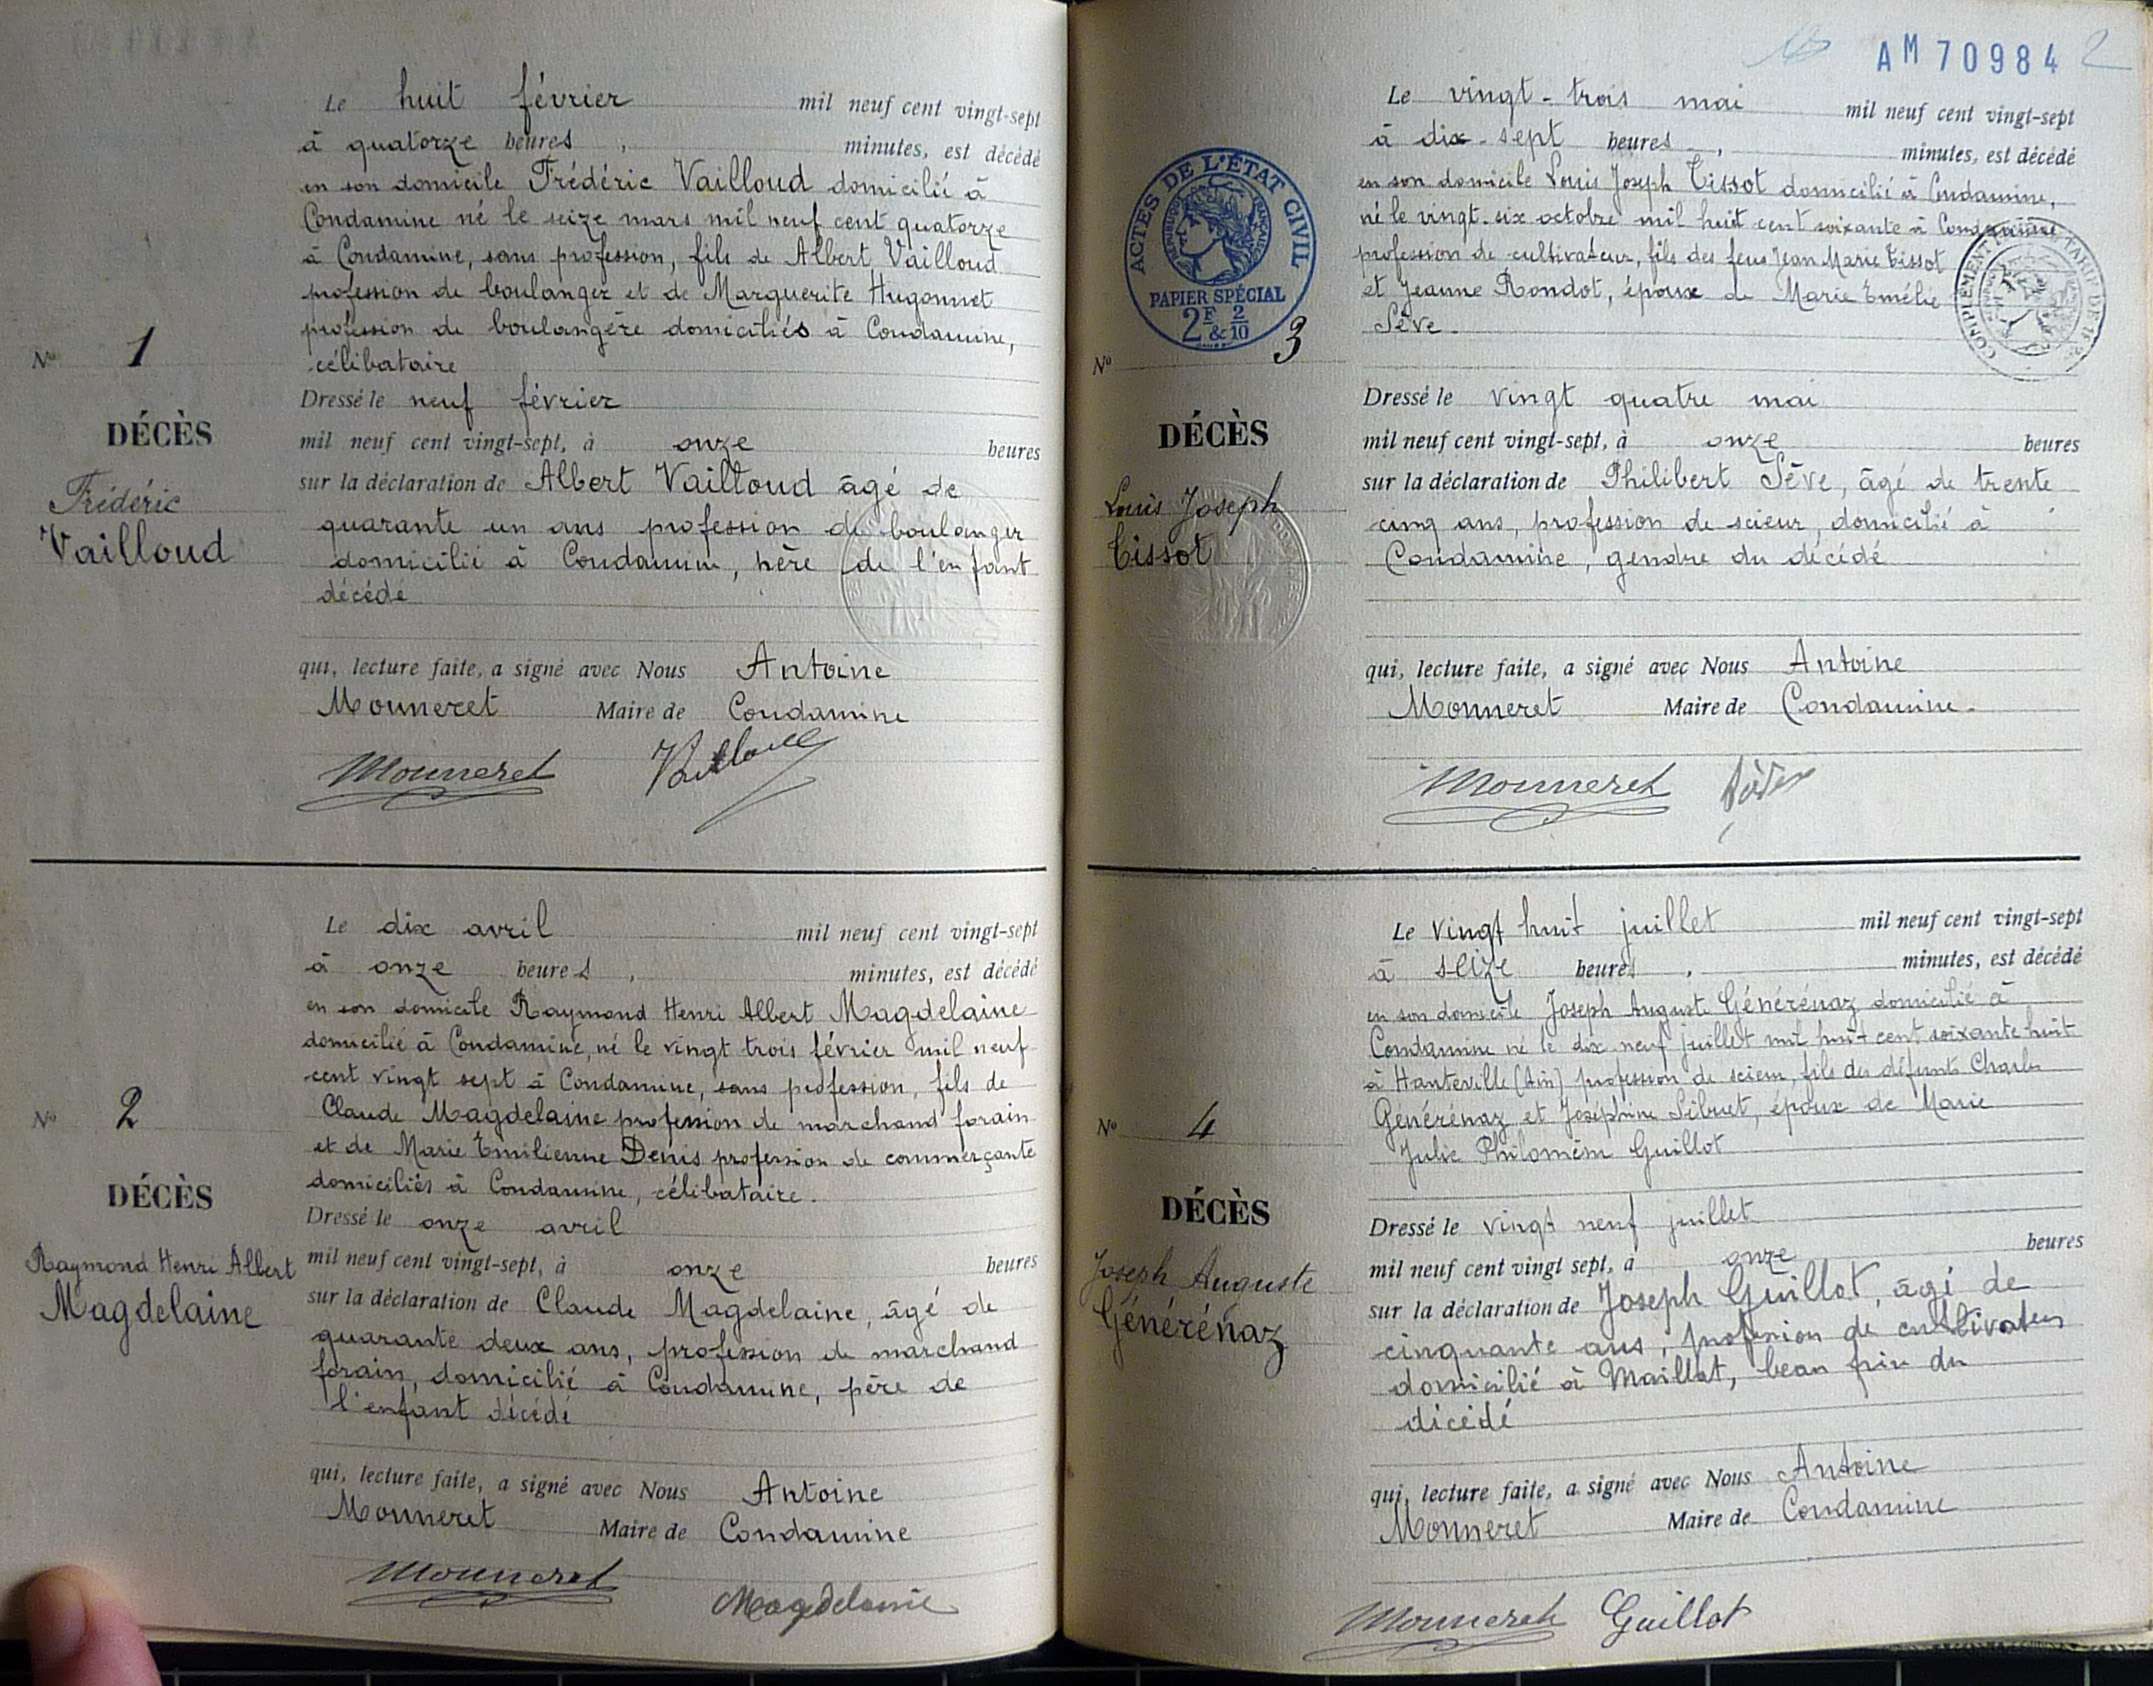 Le huit février mil neuf cent vingt-sept
à quatorze heures, minutes, est décédé
en son domicile Frédéric Vailloud domicilié à
Condamine né le seize mars mil neuf cent quatorze
à Condamine, sans profession, fils de Albert Vailloud
profession de boulanger et de Marguerite Hugonnet
profession de boulangère domiciliés à Condamine,
célibataire
Nº 1
DÉCÈS
Frédéric
Vailloud
Dressé le neuf février
mil neuf cent vingt-sept, à onze heures
sur la déclaration de Albert Vailloud âgé de
quarante un ans profession de boulanger
domicilié à Condamine, père de l'enfant
décédé
qui, lecture faite, a signé avec Nous Antoine
Monneret Maire de Condamine
Monneret Vailloud
Le dix avril mil neuf cent vingt-sept
à onze heures, minutes, est décédé
en son domicile Raymond Henri Albert Magdelaine
domicilié à Condamine, né le vingt trois février mil neuf
cent vingt sept à Condamine, sans profession, fils de
Claude Magdelaine profession de marchand forain
et de Marie Emilienne Denis profession de commerçante
domiciliés à Condamine, célibataire.
Nº 2
DÉCÈS
Raymond Henri Albert
Magdelaine
Dressé le onze avril
mil neuf cent vingt-sept, à onze heures
sur la déclaration de Claude Magdelaine, âgé de
quarante deux ans, profession de marchand
forain, domicilié à Condamine, père de
l'enfant décédé
qui, lecture faite, a signé avec Nous Antoine
Monneret Maire de Condamine
Monneret Magdelaine
AM 70984 2
Le vingt-trois mai mil neuf cent vingt-sept
à dix-sept heures, minutes, est décédé
en son domicile Louis Joseph Tissot domicilié à Condamine,
né le vingt-six octobre mil huit cent soixante à Condamine
profession de cultivateur, fils des feus Jean Marie Tissot
et Jeanne Rondot, époux de Marie Emélie
Sève.
ACTES DE L'ÉTAT CIVIL
RÉPUBLIQUE FRANÇAISE
PAPIER SPÉCIAL
2F & 2/10
Nº 3
DÉCÈS
Louis Joseph
Tissot
Dressé le vingt quatre mai
mil neuf cent vingt-sept, à onze heures
sur la déclaration de Philibert Sève, âgé de trente
cinq ans, profession de scieur, domicilié à
Condamine, gendre du décédé
qui, lecture faite, a signé avec Nous Antoine
Monneret Maire de Condamine.
Monneret Sève
Le vingt huit juillet mil neuf cent vingt-sept
à seize heures, minutes, est décédé
en son domicile Joseph Auguste Générénaz domicilié à
Condamine né le dix neuf juillet mil huit cent soixante huit
à Hauteville (Ain) profession de scieur, fils des défunts Charles
Générénaz et Joséphine Sibuet, époux de Marie
Julie Philomène Guillot
Nº 4
DÉCÈS
Joseph Auguste
Générénaz
Dressé le vingt neuf juillet
mil neuf cent vingt sept, à onze heures
sur la déclaration de Joseph Guillot, âgé de
cinquante ans, profession de cultivateur
domicilié à Maillat, beau frère du
décédé
qui, lecture faite, a signé avec Nous Antoine
Monneret Maire de Condamine
Monneret Guillot